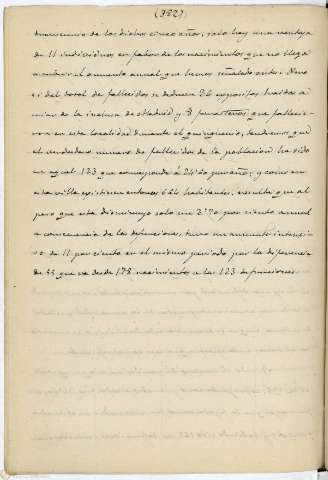 (722)
de los dichos cinco años, solo hay una ventaja
de 11 individuos en favor de los nacimientos que no llega
a cubrir el aumento anual que hemos señalado antes. Pero
si del total de fallecidos se deducen 36 expósitos traidos a
de la inclusa de Madrid y 8 forasteros que fallecie-
ron en esta localidad durante el quinquenio, tendremos que
el verdadero numero de fallecidos de la poblacion ha sido
en aquel 123 que corresponde á 24'60 por año; y como en
esta villa existieran entonces 624 habitantes, resulta que al
paso que esta disminuyo solo un 3'90 por ciento anual
a consecuencia de las defunciones, tuvo un aumento
de 11 por ciento en el mismo periodo por la diferencia
de 55 que va desde 178 nacimientos a las 123 defunciones.